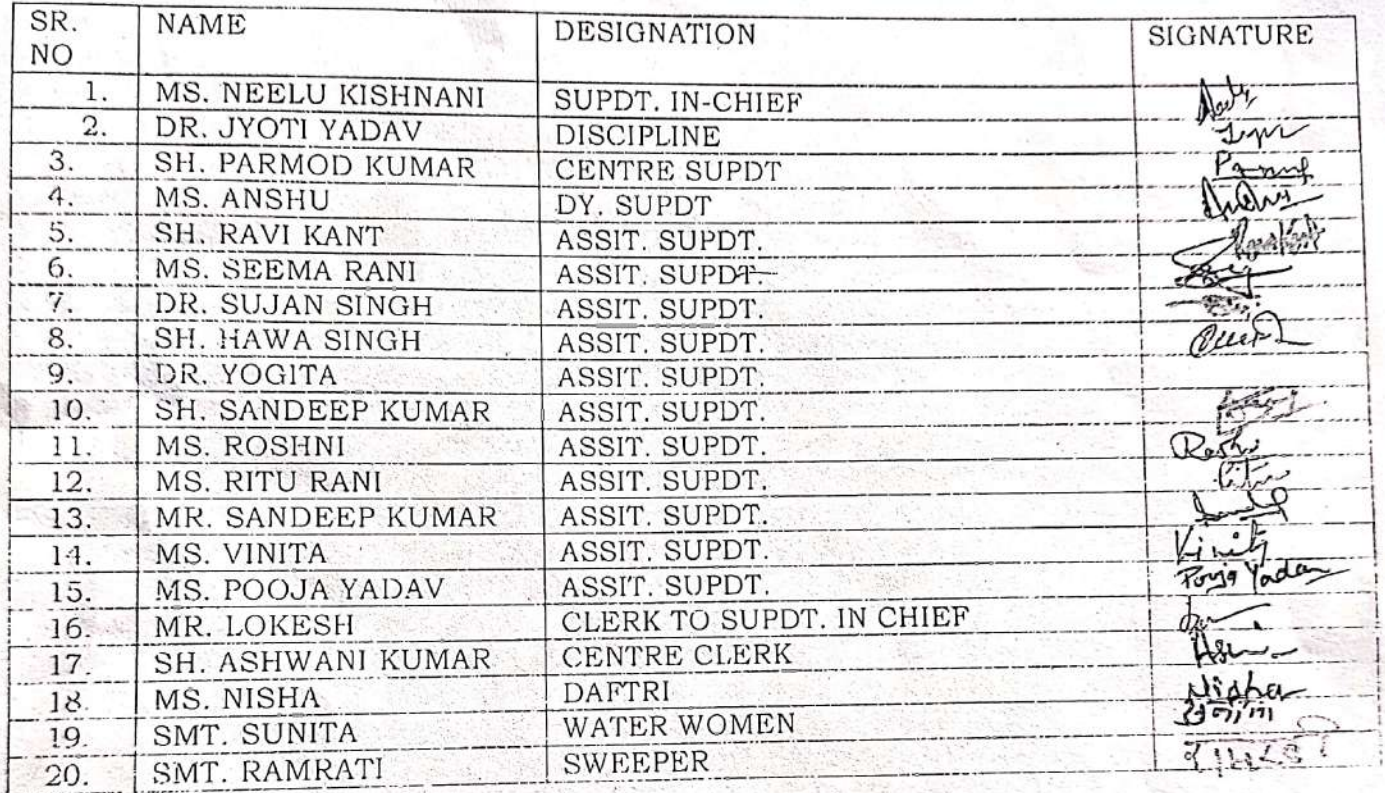 SR. NO NAME DESIGNATION SIGNATURE
1. MS. NEELU KISHNANI SUPDT. IN-CHIEF
2. DR. JYOTI YADAV DISCIPLINE
3. SH. PARMOD KUMAR CENTRE SUPDT
4. MS. ANSHU DY. SUPDT
5. SH. RAVI KANT ASSIT. SUPDT.
6. MS. SEEMA RANI ASSIT. SUPDT.
7. DR. SUJAN SINGH ASSIT. SUPDT.
8. SH. HAWA SINGH ASSIT. SUPDT.
9. DR. YOGITA ASSIT. SUPDT.
10. SH. SANDEEP KUMAR ASSIT. SUPDT.
11. MS. ROSHNI ASSIT. SUPDT.
12. MS. RITU RANI ASSIT. SUPDT.
13. MR. SANDEEP KUMAR ASSIT. SUPDT.
14. MS. VINITA ASSIT. SUPDT.
15. MS. POOJA YADAV ASSIT. SUPDT. Pooja Yadav
16. MR. LOKESH CLERK TO SUPDT. IN CHIEF
17. SH. ASHWANI KUMAR CENTRE CLERK
18. MS. NISHA DAFTRI Nisha
19. SMT. SUNITA WATER WOMEN
20. SMT. RAMRATI SWEEPER